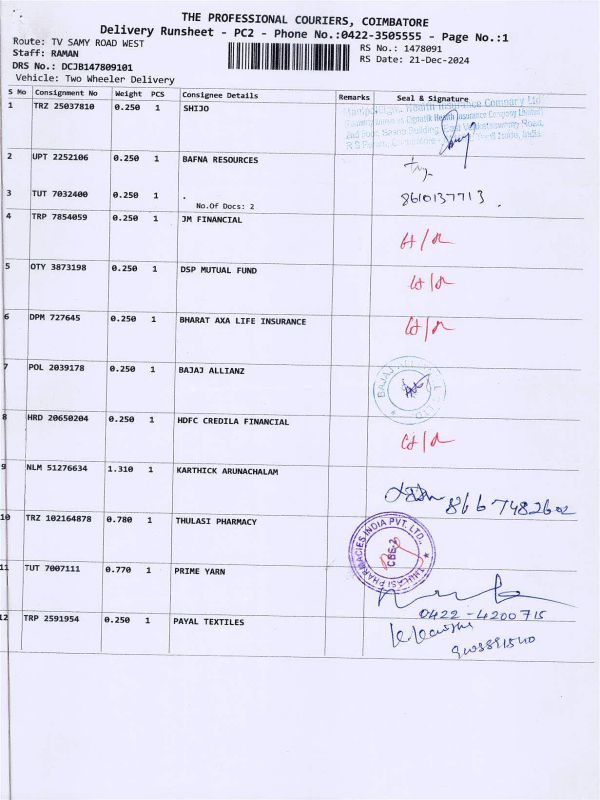 THE PROFESSIONAL COURIERS, COIMBATORE
Delivery Runsheet - PC2 - Phone No.:0422-3505555 - Page No.:1
Route: TV SAMY ROAD WEST
RS No.: 1478091
Staff: RAMAN
RS Date: 21-Dec-2024
DRS No.: DCJB147809101
Vehicle: Two Wheeler Delivery
S No Consignment No Weight PCS Consignee Details Remarks Seal & Signature
1 TRZ 25037810 0.250 1 SHIJO
Health Insurance Company Ltd
Health Insurance Company Limited
2nd Floor, Building, Road,
India
2 UPT 2252106 0.250 1 BAFNA RESOURCES
3 TUT 7032400 0.250 1 . 8610137713.
No.Of Docs: 2
4 TRP 7854059 0.250 1 JM FINANCIAL
5 OTY 3873198 0.250 1 DSP MUTUAL FUND
6 DPM 727645 0.250 1 BHARAT AXA LIFE INSURANCE
7 POL 2039178 0.250 1 BAJAJ ALLIANZ
BAJAJ
8 HRD 20650204 0.250 1 HDFC CREDILA FINANCIAL
9 NLM 51276634 1.310 1 KARTHICK ARUNACHALAM
8667482602
10 TRZ 102164878 0.780 1 THULASI PHARMACY
THULASI PHARMACIES INDIA PVT. LTD.,
CBE-2
11 TUT 7007111 0.770 1 PRIME YARN
0422-4200715
12 TRP 2591954 0.250 1 PAYAL TEXTILES